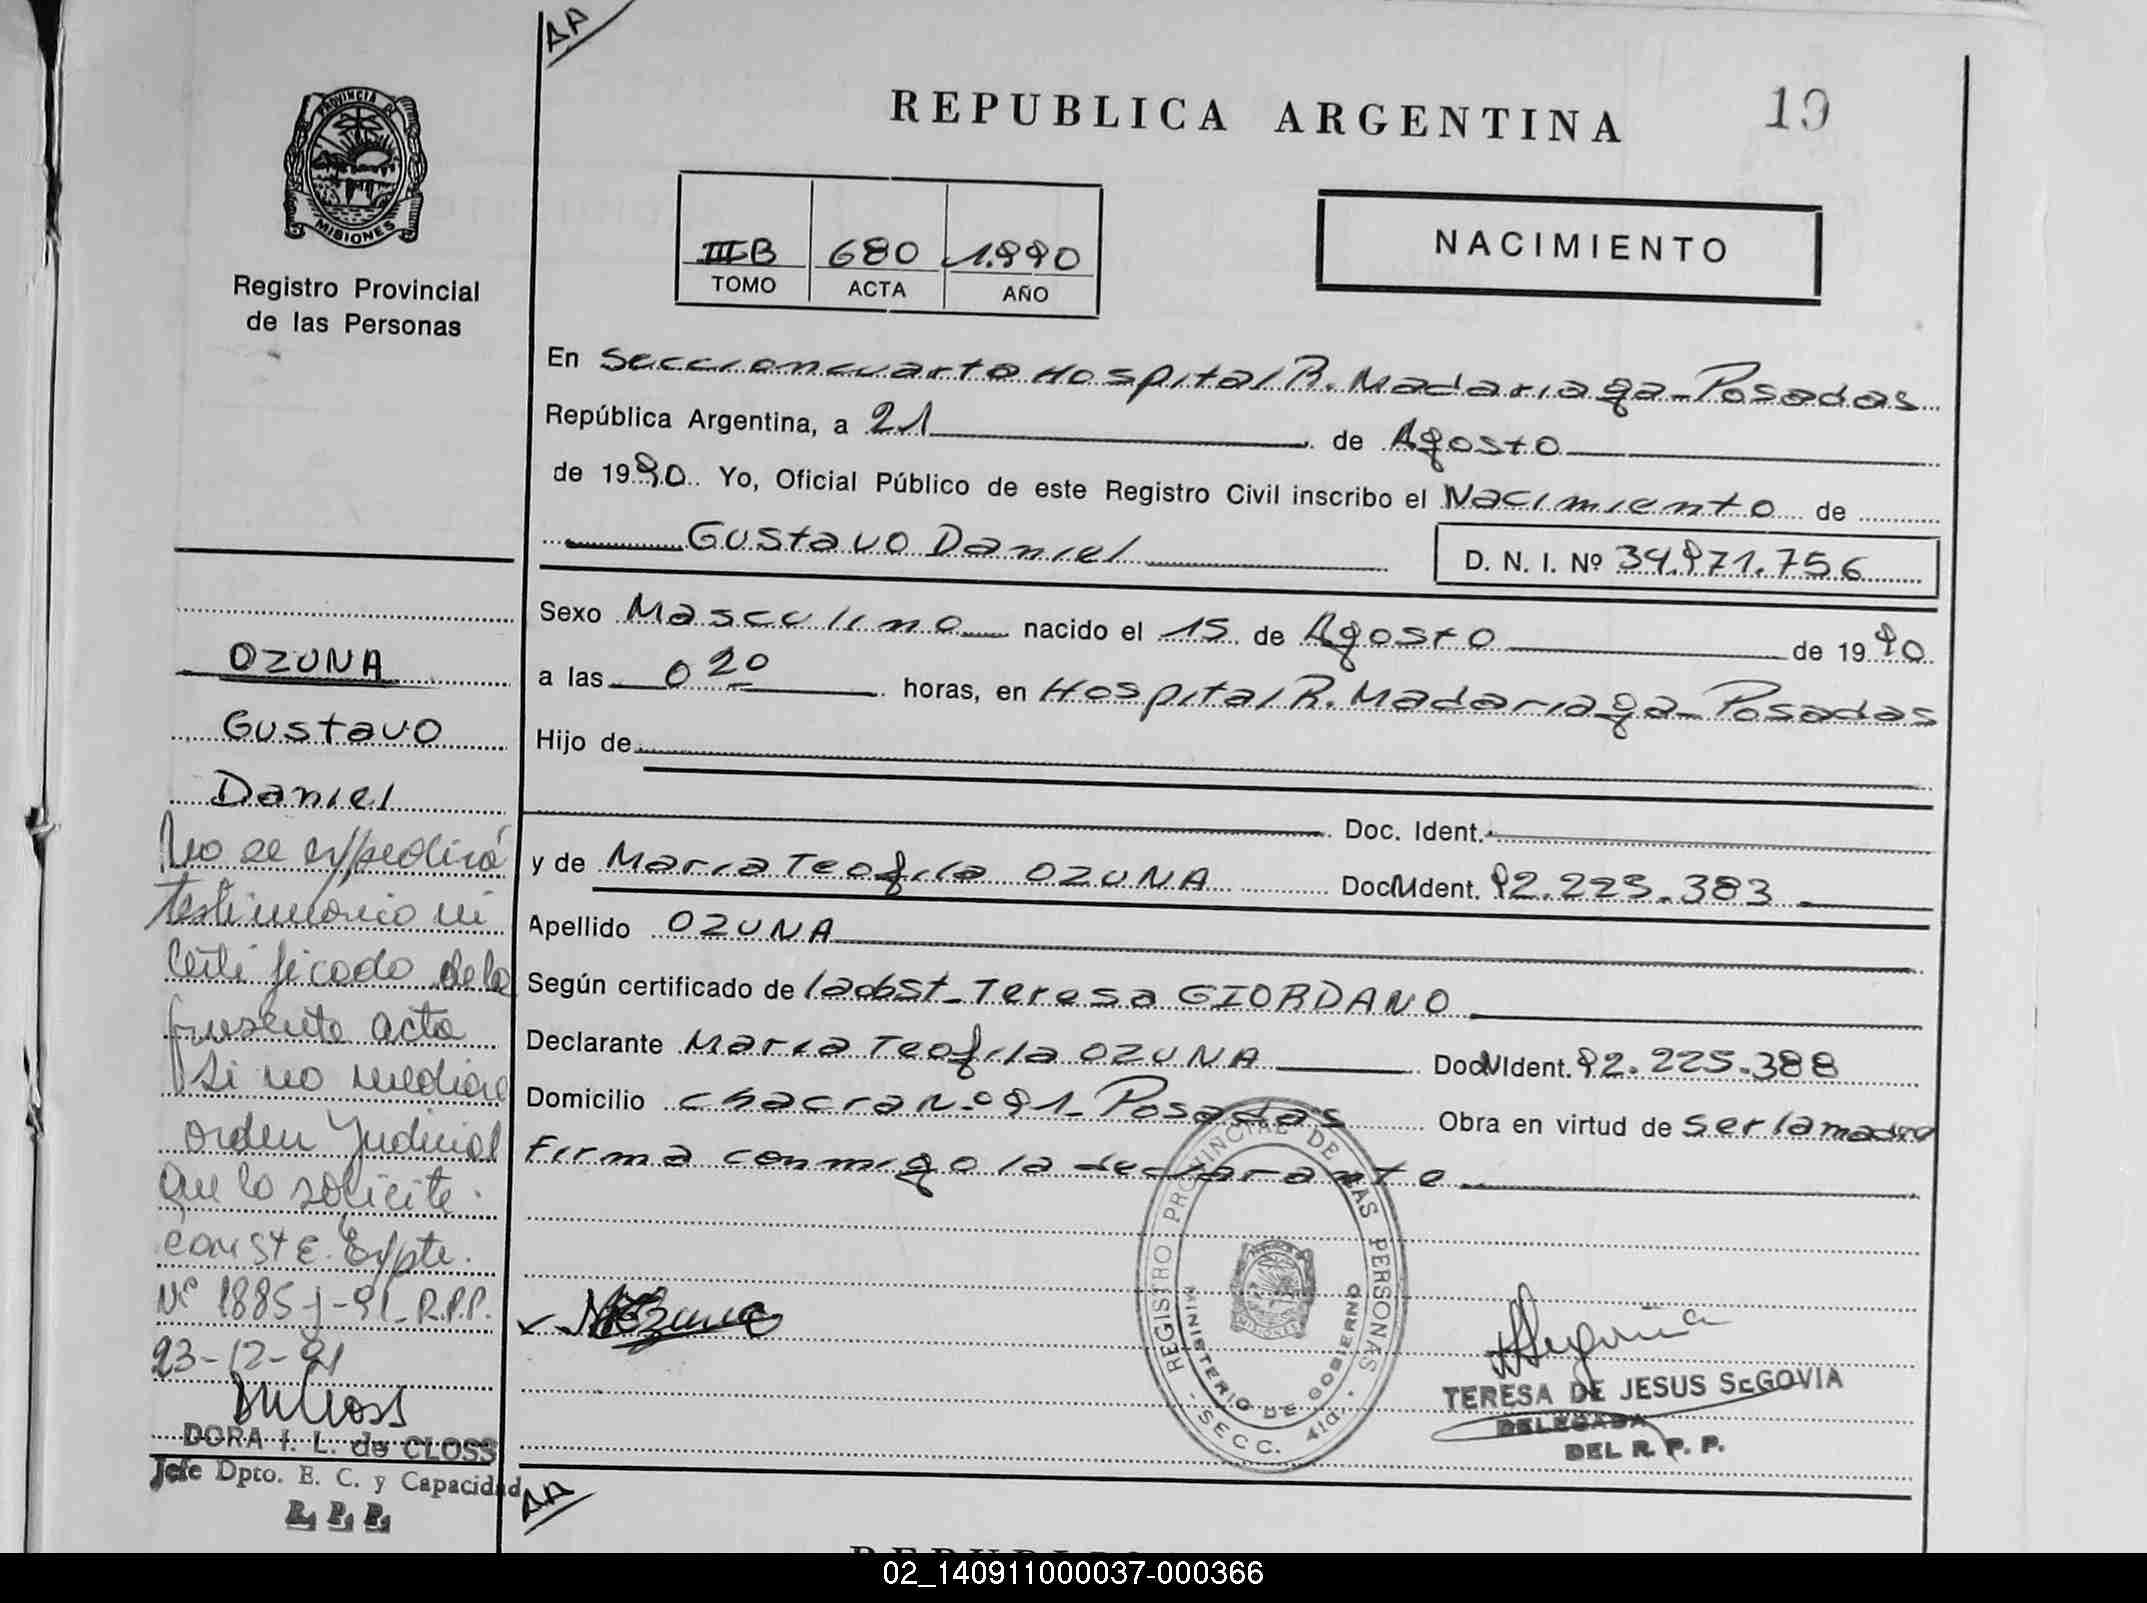 AA
REPUBLICA ARGENTINA
19
PROVINCIA DE
MISIONES
Registro Provincial
de las Personas
IIIB 680 1.990
TOMO ACTA AÑO
NACIMIENTO
En Seccion cuarta Hospital R. Madariaga - Posadas
República Argentina, a 21 de Agosto
de 1990. Yo, Oficial Público de este Registro Civil inscribo el Nacimiento de
Gustavo Daniel
D. N. I. Nº 34.971.756
Sexo Masculino nacido el 15 de Agosto de 1990
a las 0 20 horas, en Hospital R. Madariaga - Posadas
Hijo de
Doc. Ident.
y de Maria Teofila OZUNA Doc. Ident. 92.225.383
Apellido OZUNA
Según certificado de la obst. Teresa GIORDANO
Declarante Maria Teofila OZUNA Doc. Ident. 92.225.388
Domicilio chacra N.º 91 - Posadas Obra en virtud de ser la madre
firma conmigo la declarante
REGISTRO PROVINCIAL DE LAS PERSONAS
MINISTERIO DE GOBIERNO
- SECC. 4ta. -
MISIONES
TERESA DE JESUS SEGOVIA
DELEGADA
DEL R. P. P.
OZUNA
Gustavo
Daniel
No se expedirá
testimonio ni
certificado de la
presente acta
si no mediare
orden Judicial
que lo solicite.
CONSTE. Expte.
Nº 1885-J-91-R.P.P.
23-12-91
DORA I. L. de CLOSS
Jefe Dpto. E. C. y Capacidad
R. P. P.
AA
02_140911000037-000366